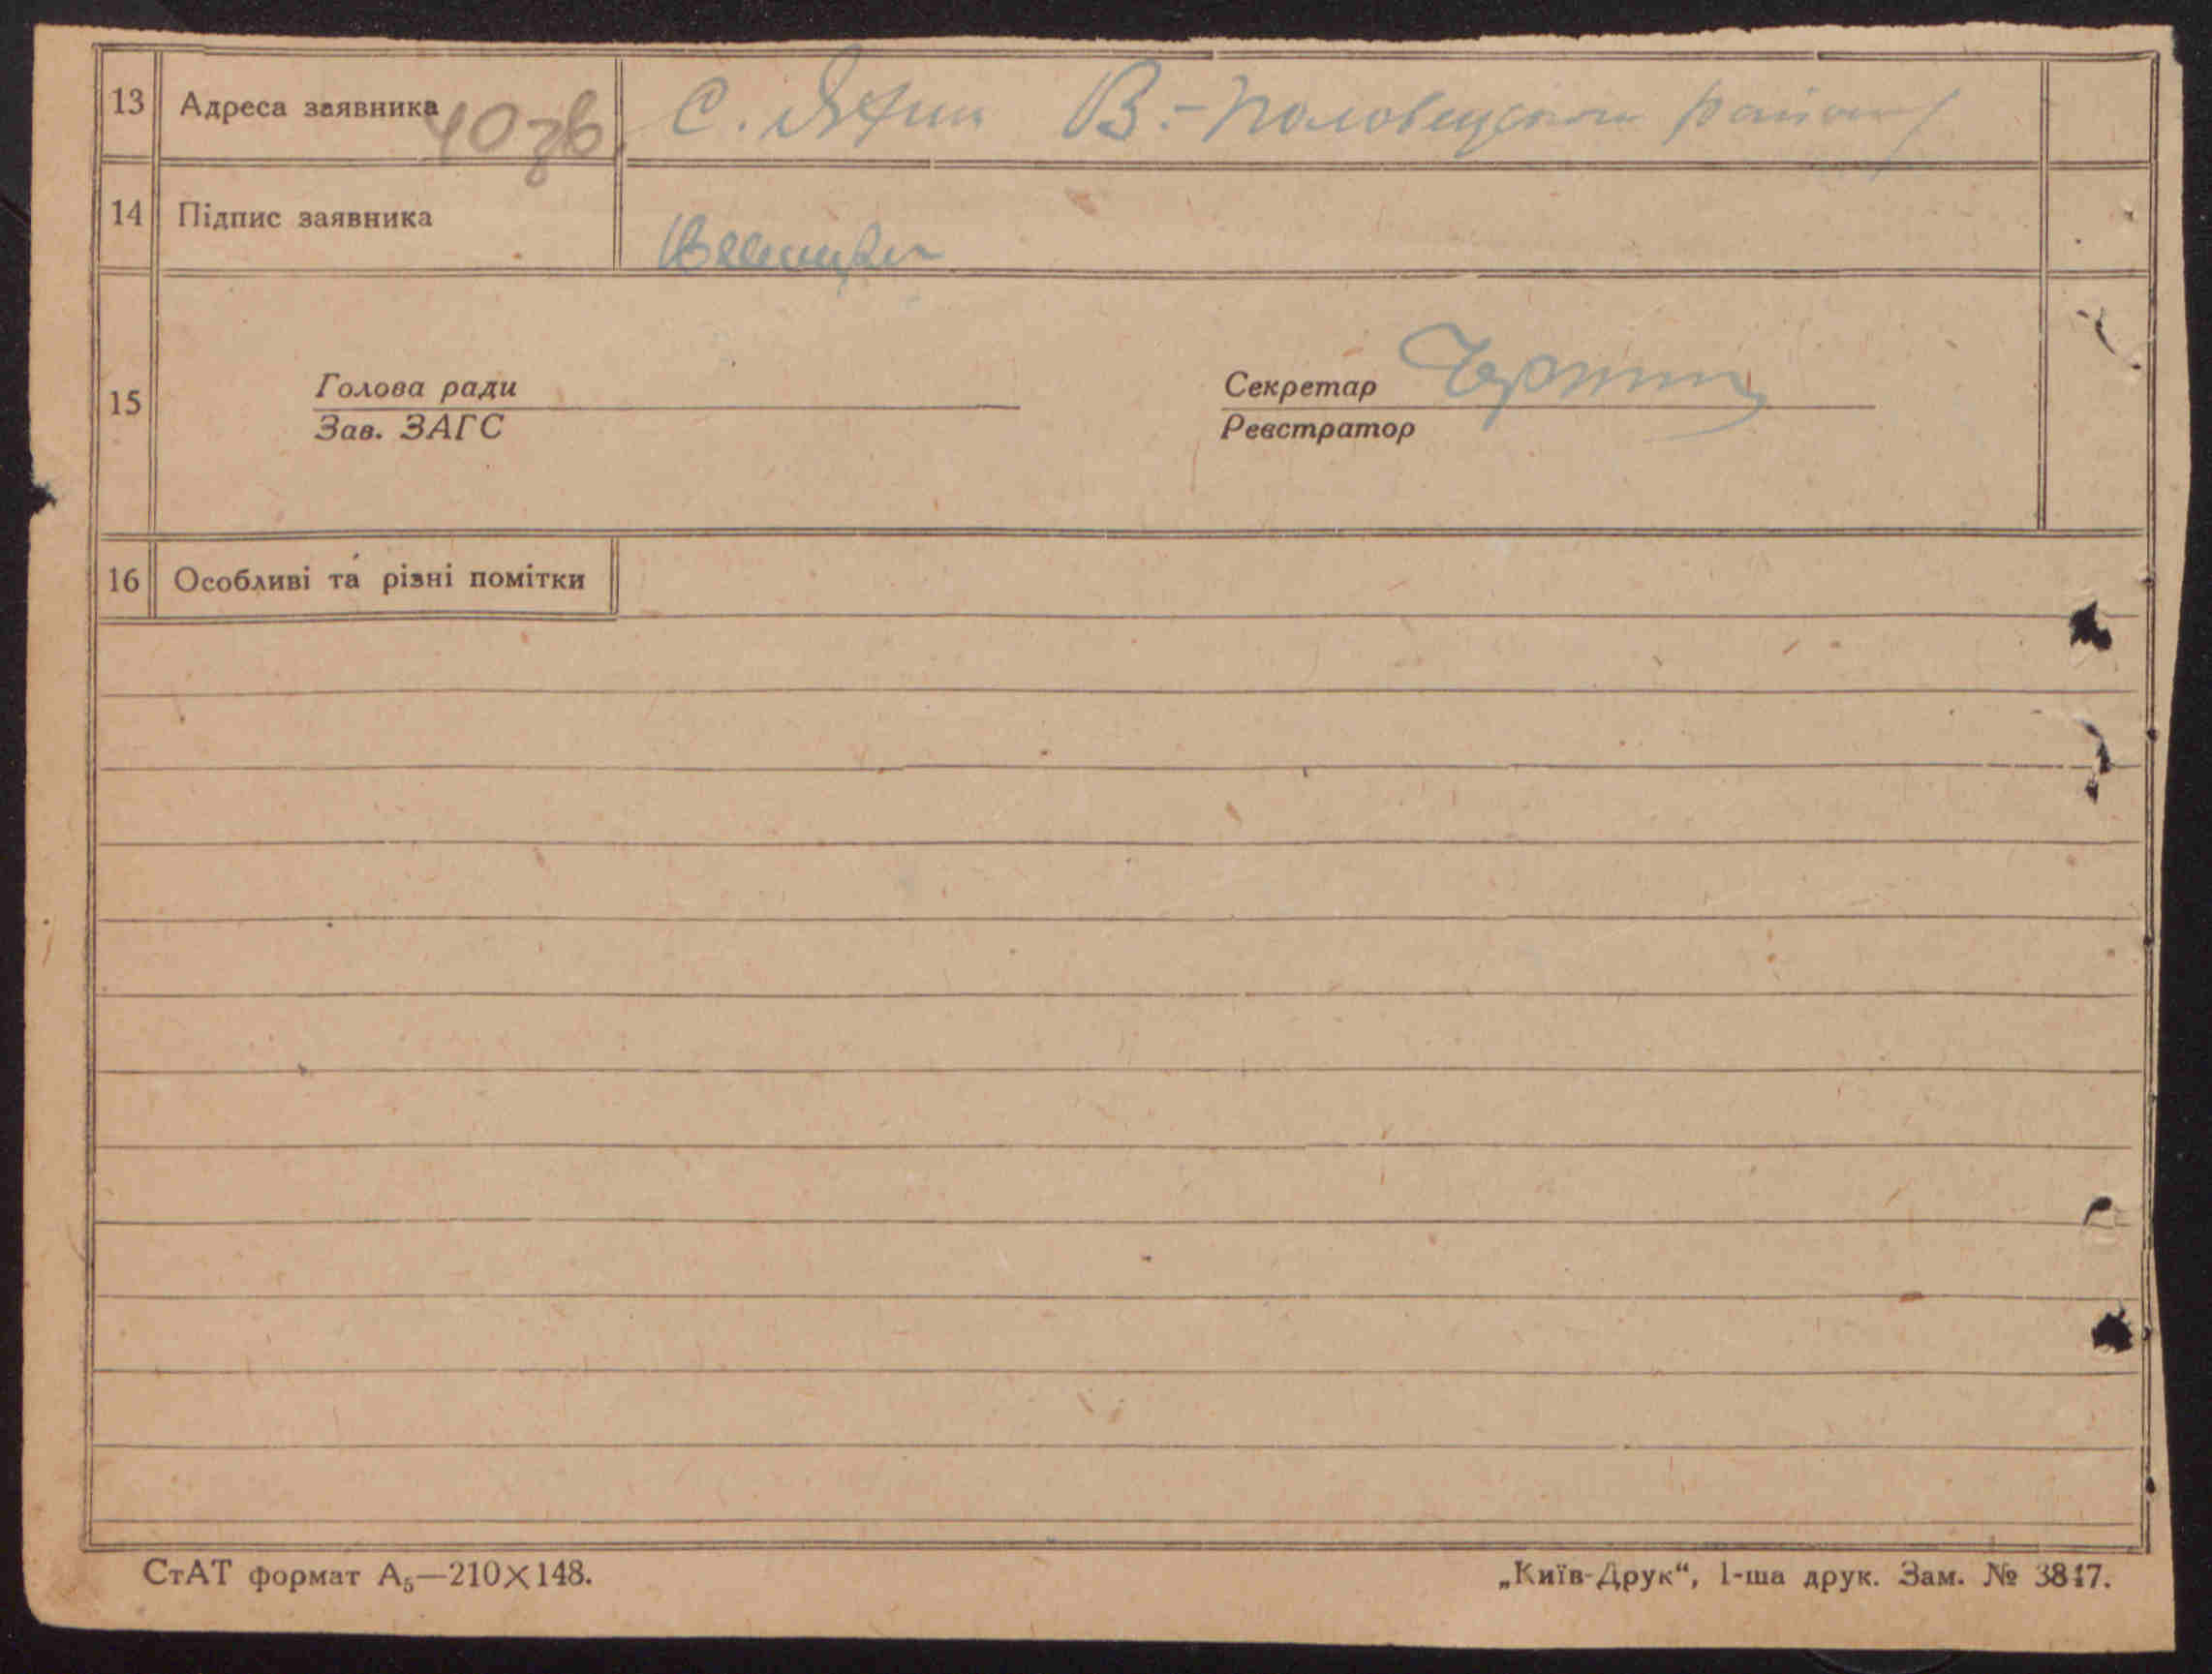 13 Адреса заявника 40 зв. С. Яхни В.-Половецького району
14 Підпис заявника
15 Голова ради Секретар
Зав. ЗАГС Реєстратор
16 Особливі та різні помітки
СтАТ формат А₅—210×148. „Київ-Друк“, 1-ша друк. Зам. № 3847.